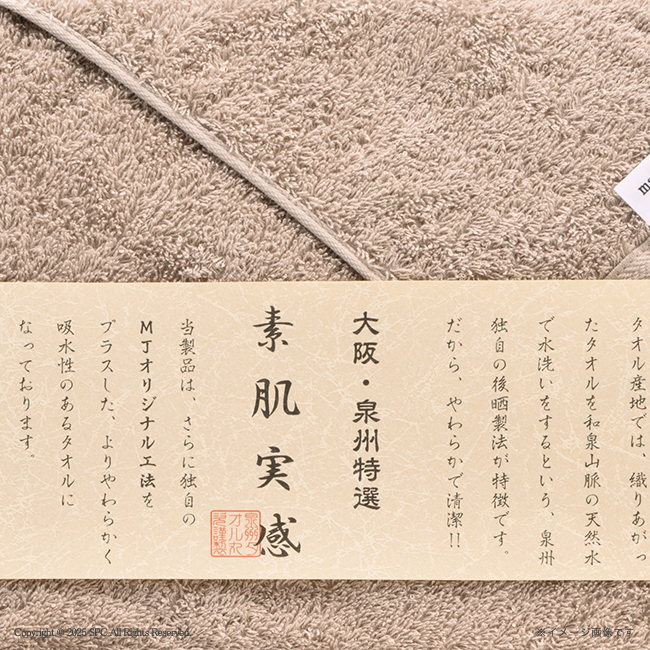 タオル産地では、織りあがっ
たタオルを和泉山脈の天然水
で水洗いをするという、泉州
独自の後晒製法が特徴です。
だから、やわらかで清潔!!
大阪・泉州特選
素肌実感
当製品は、さらに独自の
MJオリジナル工法を
プラスした、よりやわらかく
吸水性のあるタオルに
なっております。
Copyright © 2025 SPC. All Rights Reserved.
※イメージ画像です